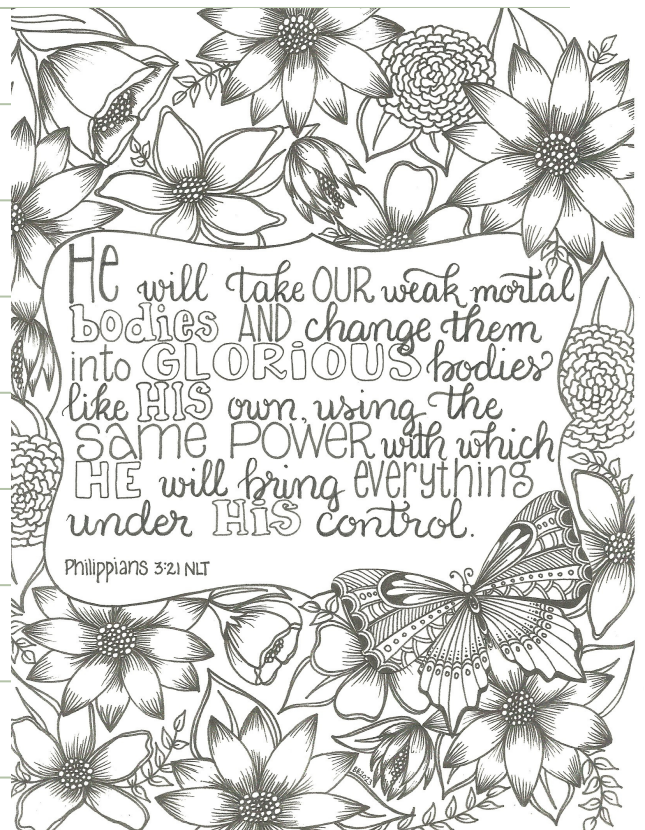 He will take OUR weak mortal
bodies AND change them
into GLORiOUS bodies
like HIS own, using the
same POWER with which
HE will bring everything
under HiS control.
Philippians 3:21 NLT